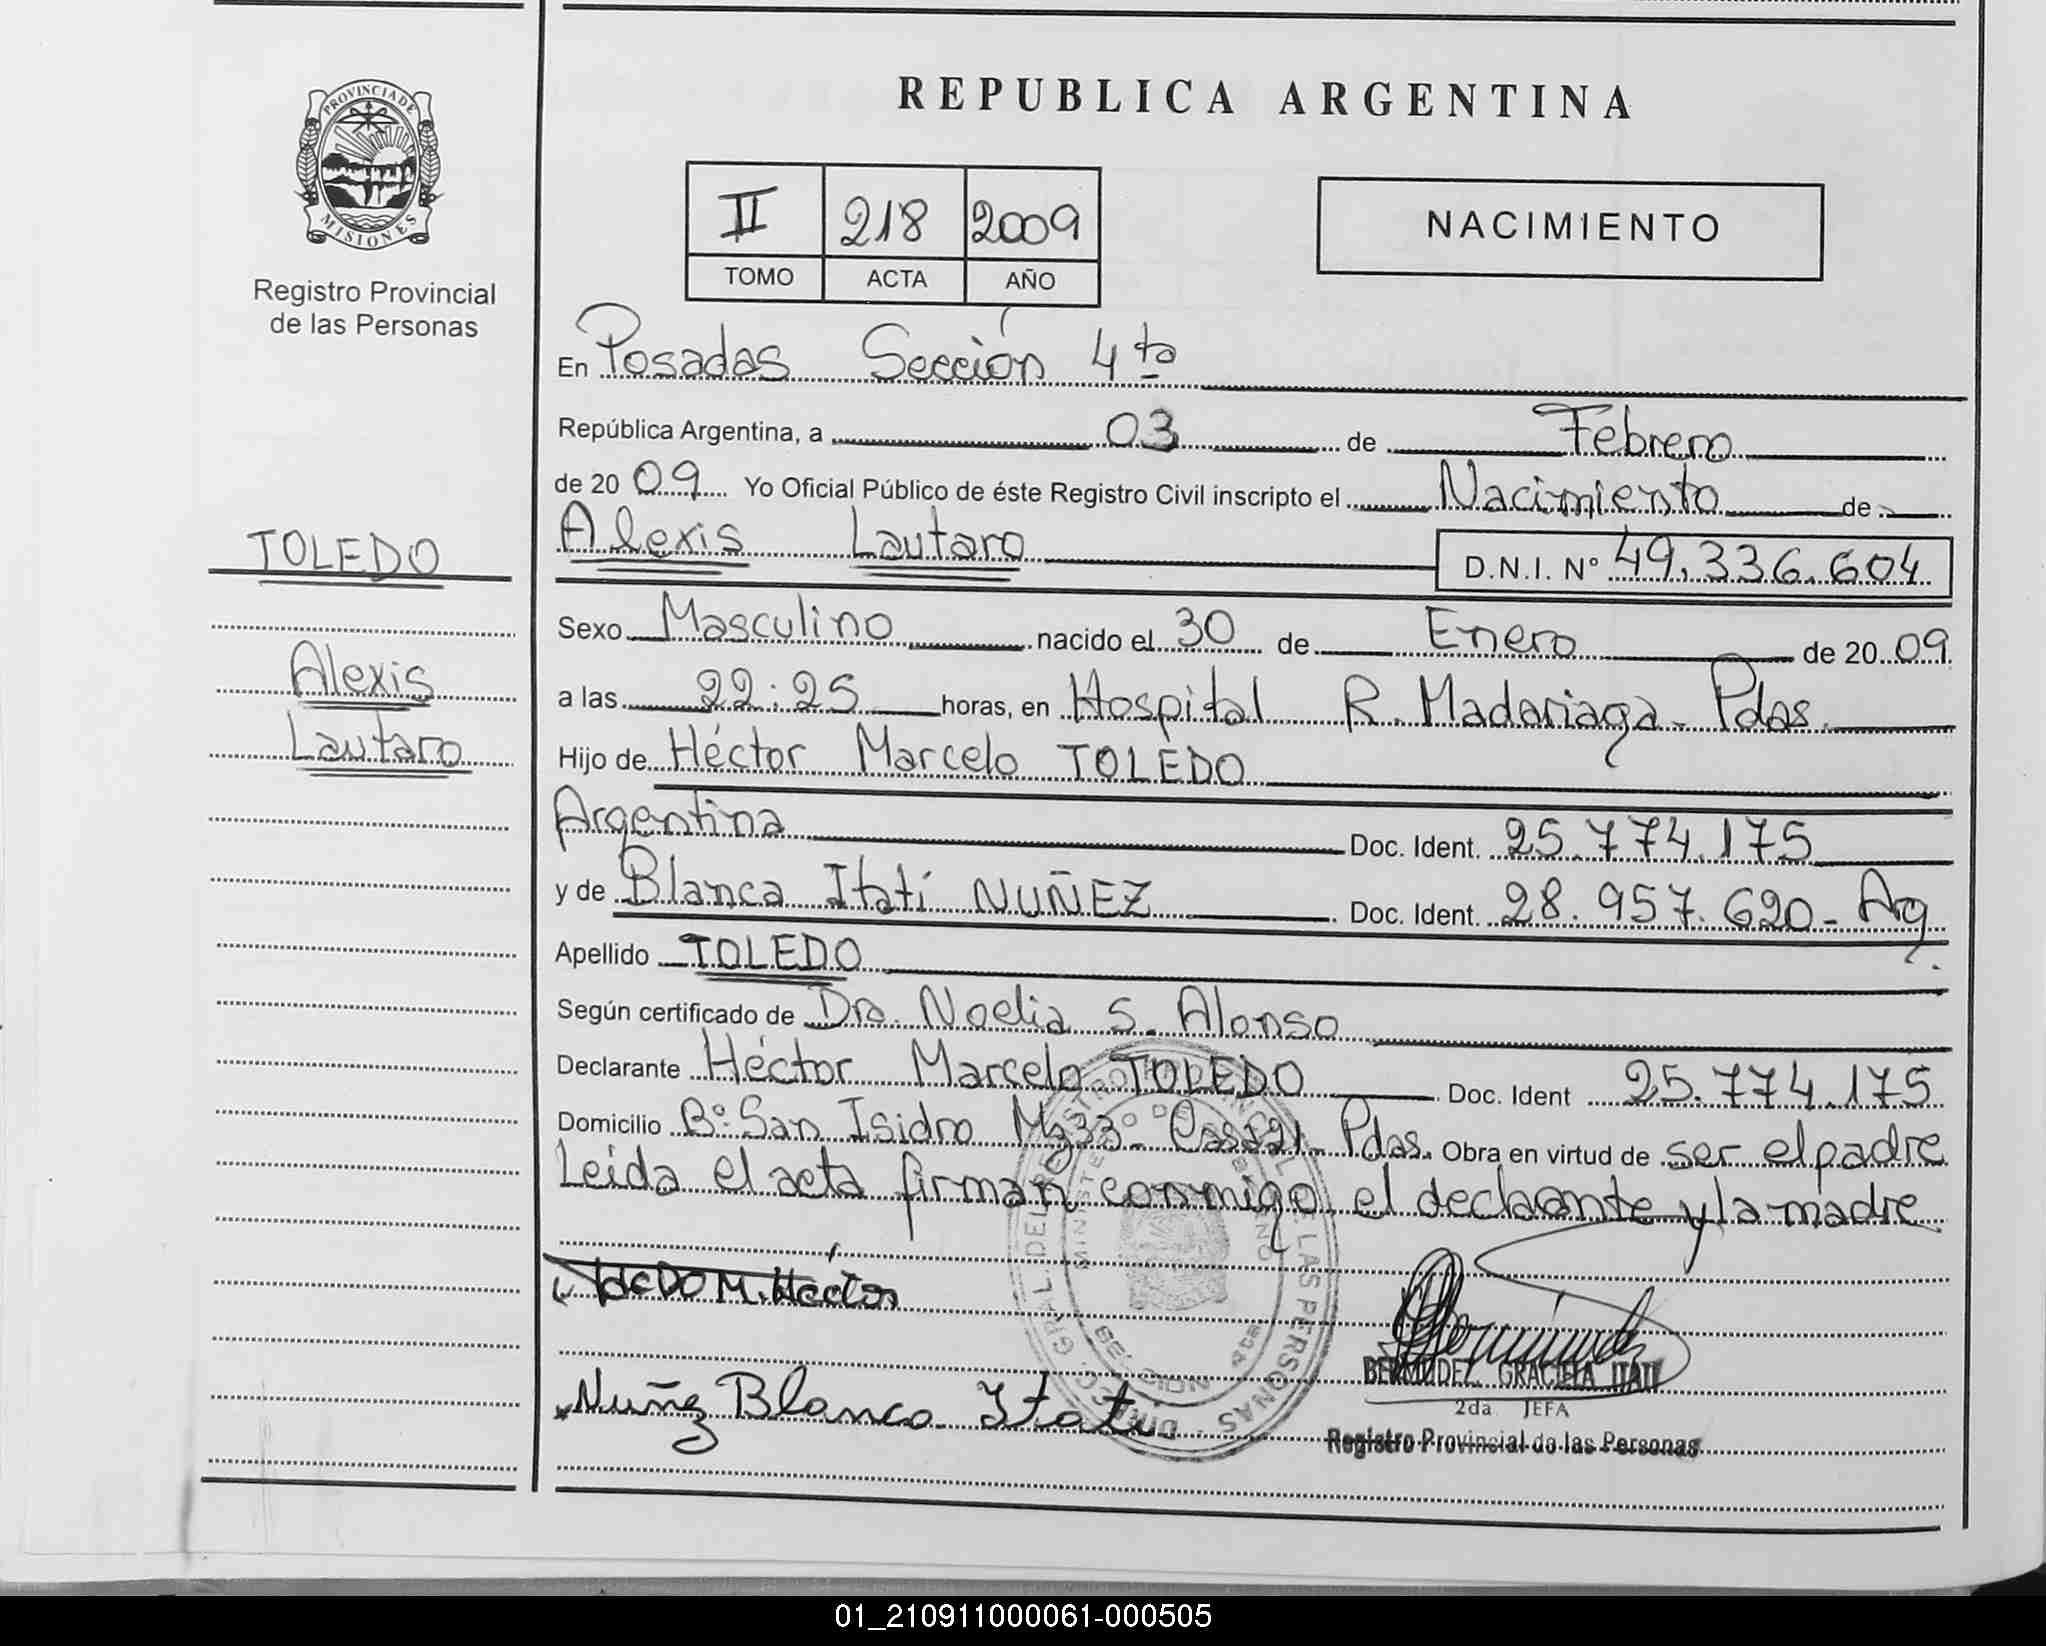 PROVINCIA DE
MISIONES
Registro Provincial
de las Personas
TOLEDO
Alexis
Lautaro
REPUBLICA ARGENTINA
II 218 2009
TOMO ACTA AÑO
NACIMIENTO
En Posadas Sección 4ta
República Argentina, a 03 de Febrero
de 2009 Yo Oficial Público de éste Registro Civil inscripto el Nacimiento de
Alexis Lautaro D.N.I. N° 49.336.604
Sexo Masculino nacido el 30 de Enero de 2009
a las 22:25 horas, en Hospital R. Madariaga - Pdas.
Hijo de Héctor Marcelo TOLEDO
Argentina Doc. Ident. 25.774.175
y de Blanca Itatí NUÑEZ Doc. Ident. 28.957.620 - Arg.
Apellido TOLEDO
Según certificado de Dra. Noelia S. Alonso
Declarante Héctor Marcelo TOLEDO Doc. Ident 25.774.175
Domicilio B°: San Isidro Mz33 - Casa21 - Pdas. Obra en virtud de ser el padre
Leida el acta firman conmigo el declarante y la madre
M. Héctor
Nuñez Blanca Itati
BERMUDEZ, GRACIELA ITATI
2da JEFA
Registro Provincial de las Personas
01_210911000061-000505